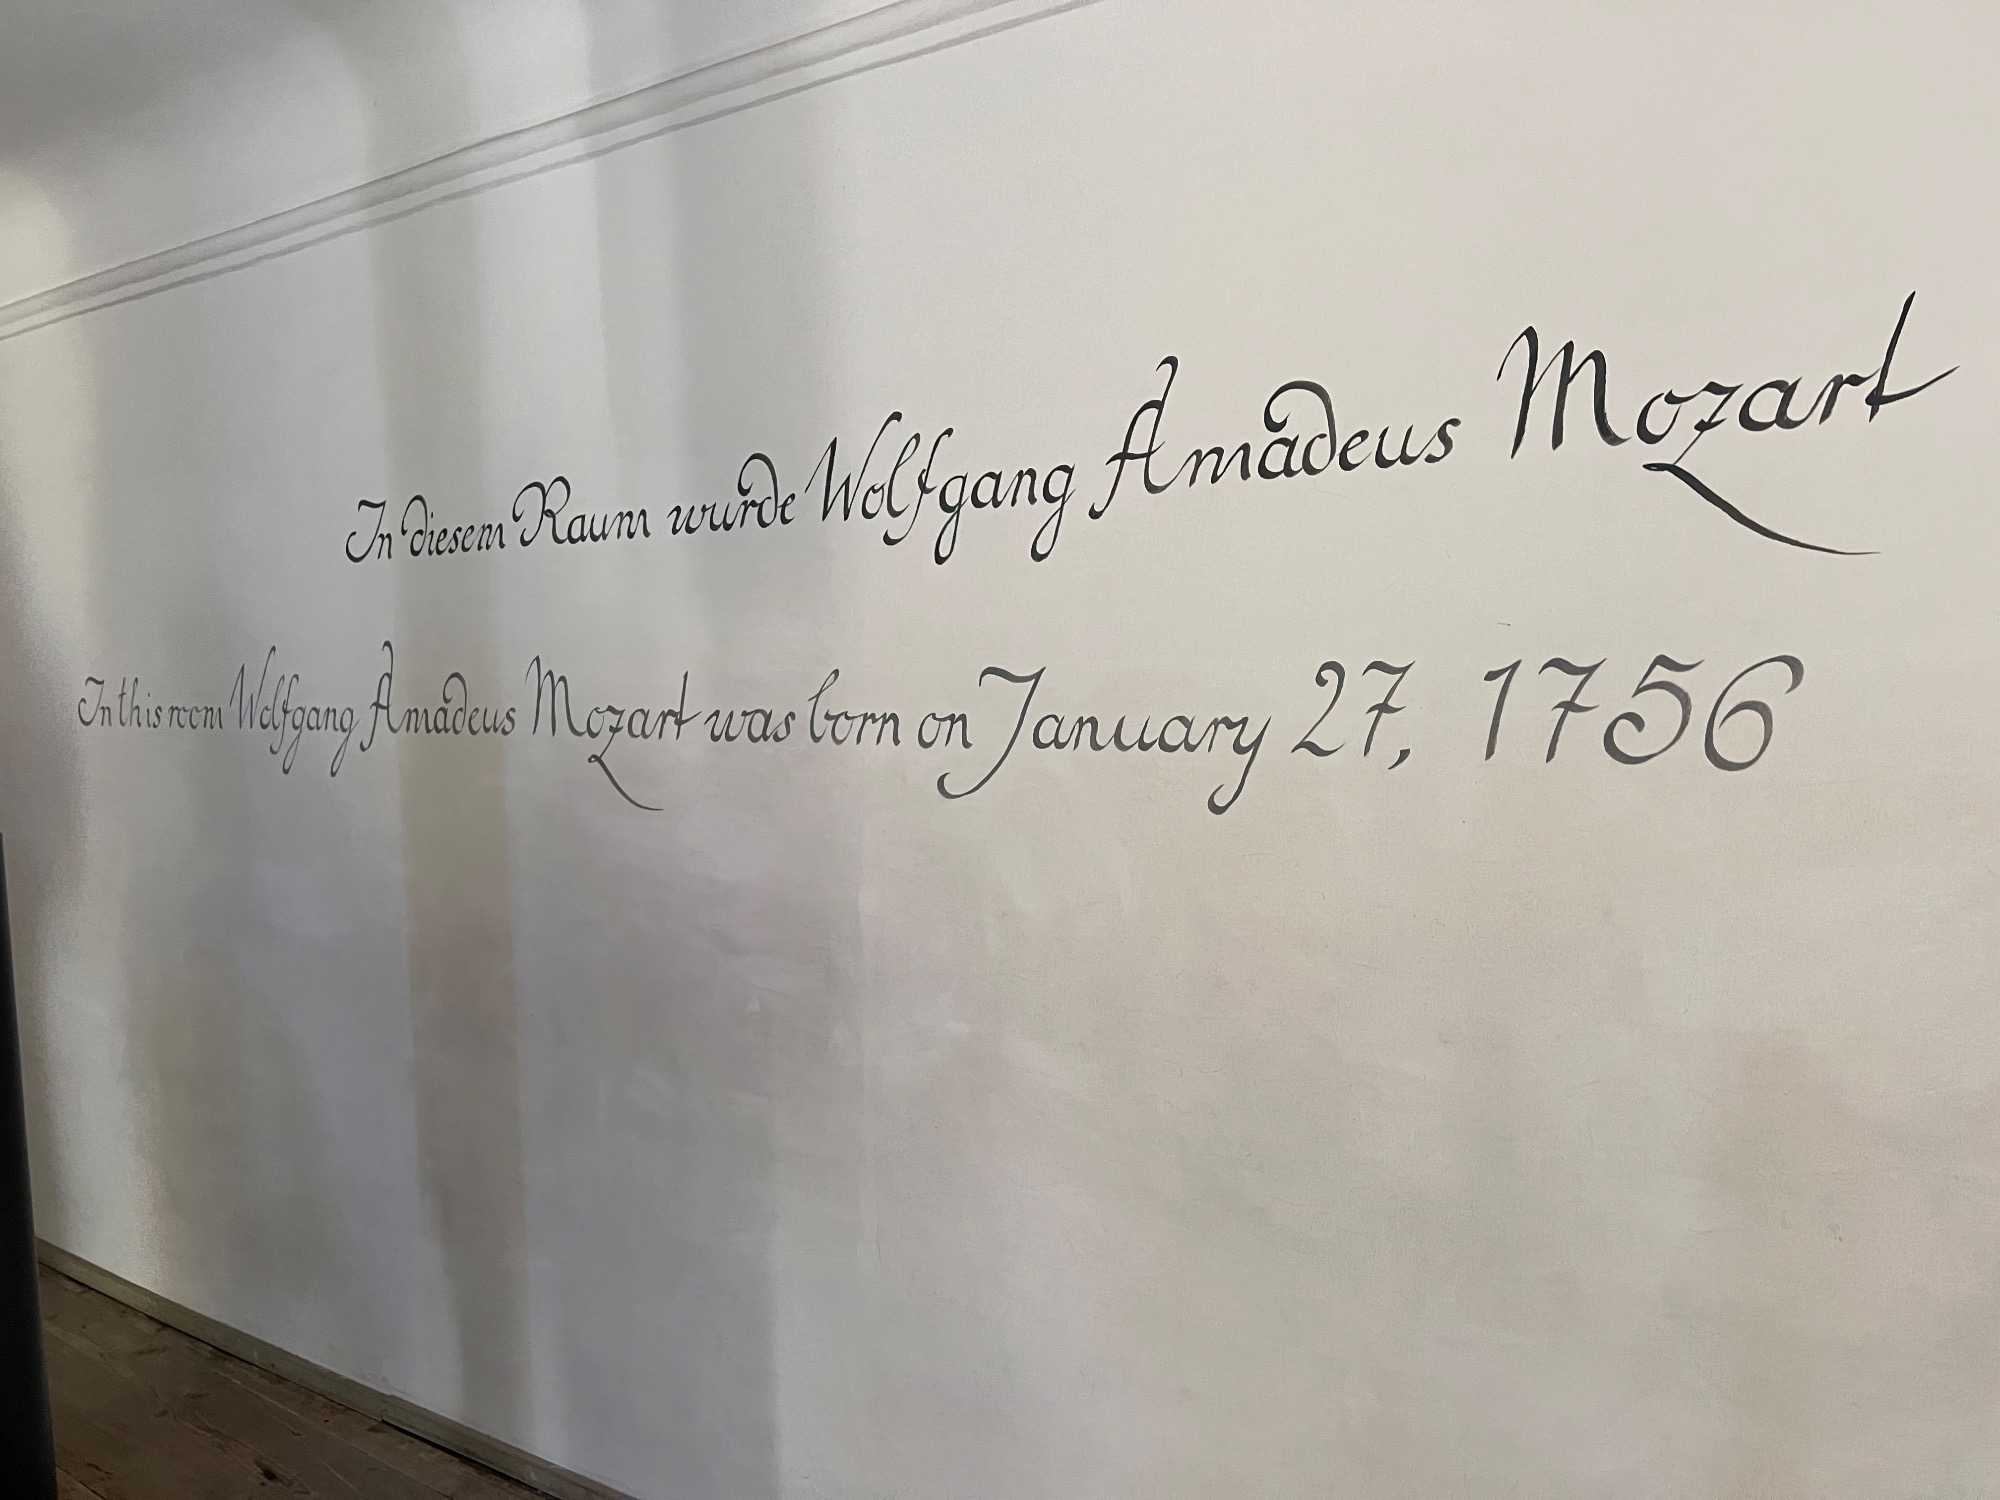 In diesem Raum wurde Wolfgang Amadeus Mozart
In this room Wolfgang Amadeus Mozart was born on January 27, 1756